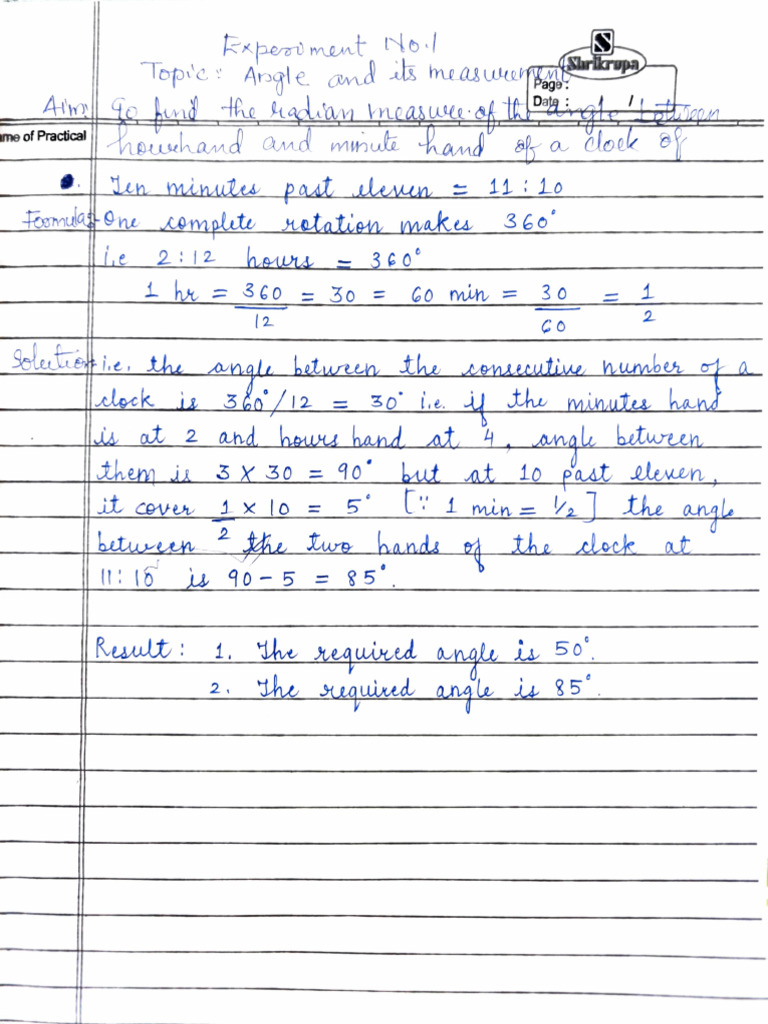 Experiment No.1
S
Shrikrupa
Topic: Angle and its measurement
Page:
Date: /
Aim: To find the radian measure of the angle between
me of Practical
hourhand and minute hand of a clock of
Ten minutes past eleven = 11:10
Formula:- One complete rotation makes 360°
i.e 2:12 hours = 360°
1 hr = 360/12 = 30 = 60 min = 30/60 = 1/2
Solution:- i.e. the angle between the consecutive number of a
clock is 360°/12 = 30° i.e. if the minutes hand
is at 2 and hours hand at 4, angle between
them is 3 x 30 = 90° but at 10 past eleven,
it cover 1/2 x 10 = 5° [∵ 1 min = 1/2] the angle
between the two hands of the clock at
11:10 is 90-5 = 85°.
Result: 1. The required angle is 50°.
2. The required angle is 85°.